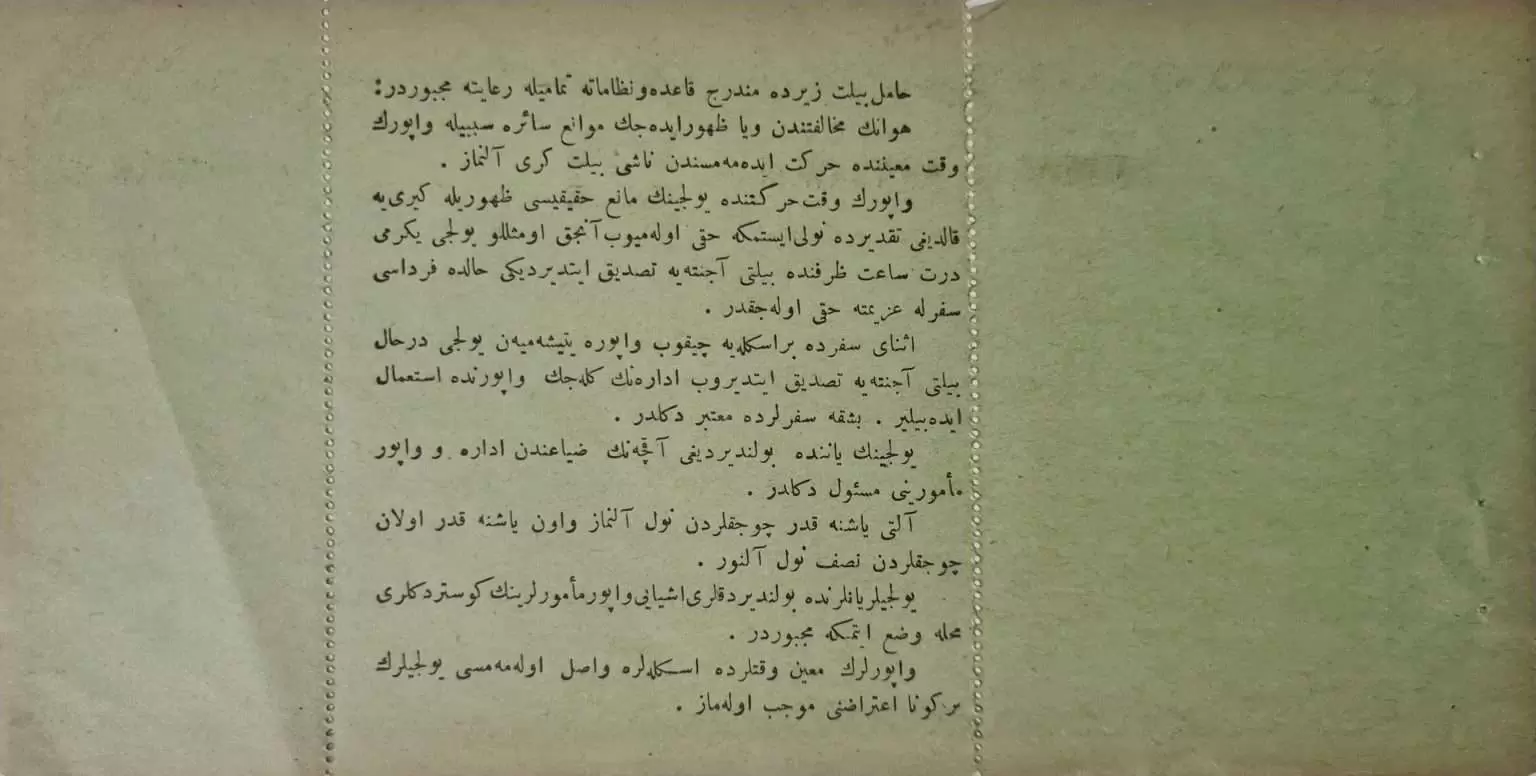 حامل بیلت زیرده مندرج قاعده ونظاماته تمامیله رعایته مجبوردر:
هوانك مخالفتندن ویا ظهورایده‌جك موانع سائره سببیله واپورك
وقت معیننده حرکت ایده‌مه‌مسندن ناشی بیلت کری آلنماز .
واپورك وقت حرکتنده یولجینك مانع حقیقیسی ظهوریله کیری‌یه
قالدیغی تقدیرده نولی ایستمکه حقی اوله‌میوب آنجق اومثللو یولجی یکرمی
درت ساعت ظرفنده بیلتی آجنته‌یه تصدیق ایتدیردیکی حالده فرداسی
سفرله عزیمته حقی اوله‌جقدر .
اثنای سفرده براسکله‌یه چیقوب واپوره یتیشه‌میه‌ن یولجی درحال
بیلتی آجنته‌یه تصدیق ایتدیروب اداره‌نك کله‌جك واپورنده استعمال
ایده‌بیلیر . بشقه سفرلرده معتبر دکلدر .
یولجینك یاننده بولندیردیغی آقچه‌نك ضیاعندن اداره و واپور
مأمورینی مسئول دکلدر .
آلتی یاشنه قدر چوجقلردن نول آلنماز واون یاشنه قدر اولان
چوجقلردن نصف نول آلنور .
یولجیلر یانلرنده بولندیردقلری اشیایی واپور مأمورلرینك کوستردکلری
محله وضع ایتمکه مجبوردر .
واپورلرك معین وقتلرده اسکله‌لره واصل اوله‌مه‌مسی یولجیلرك
برکونا اعتراضنی موجب اوله‌ماز .